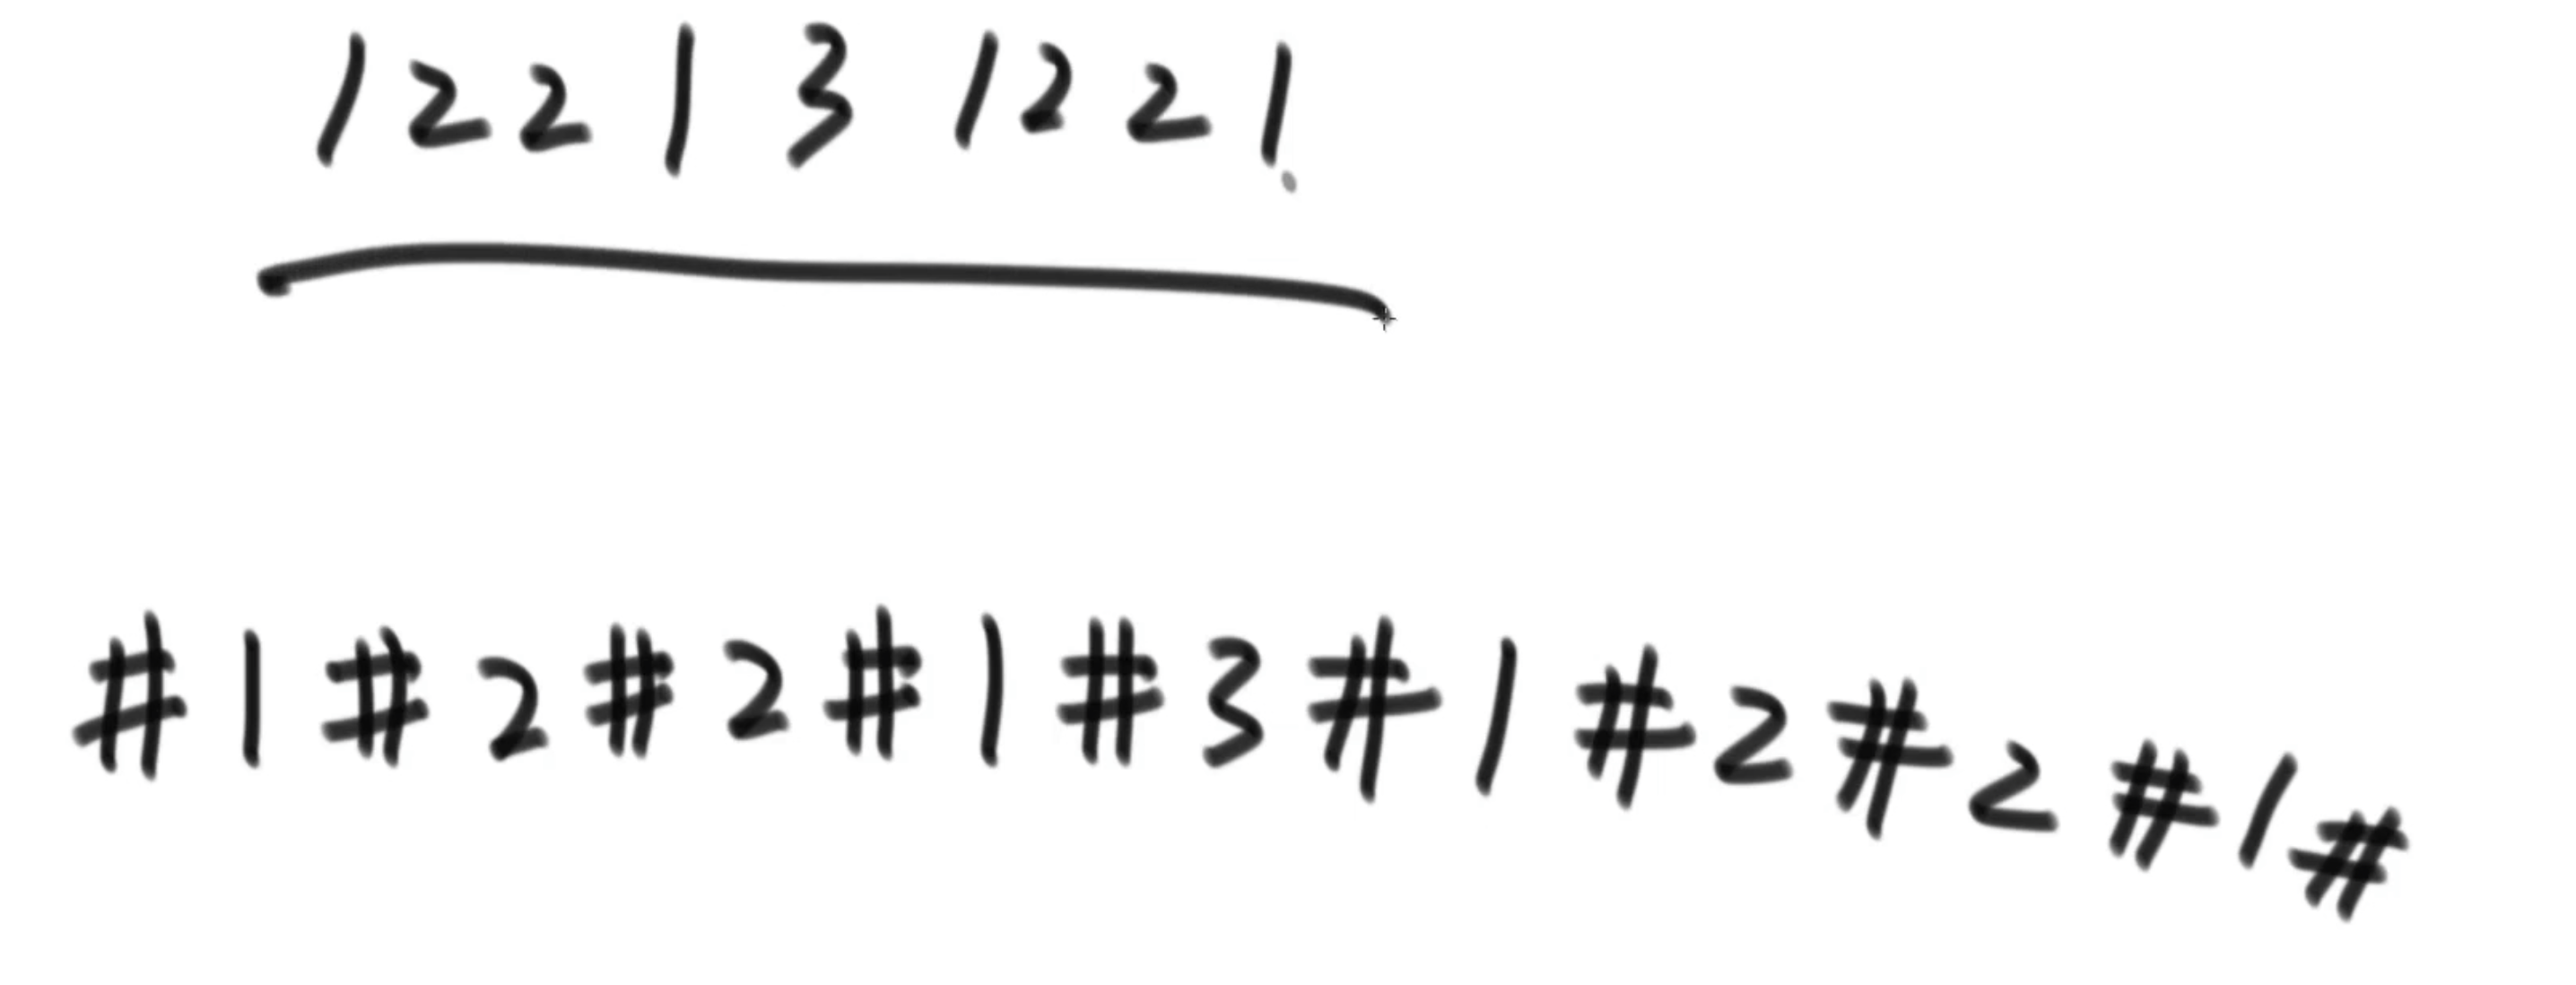 122131221
#1#2#2#1#3#1#2#2#1#